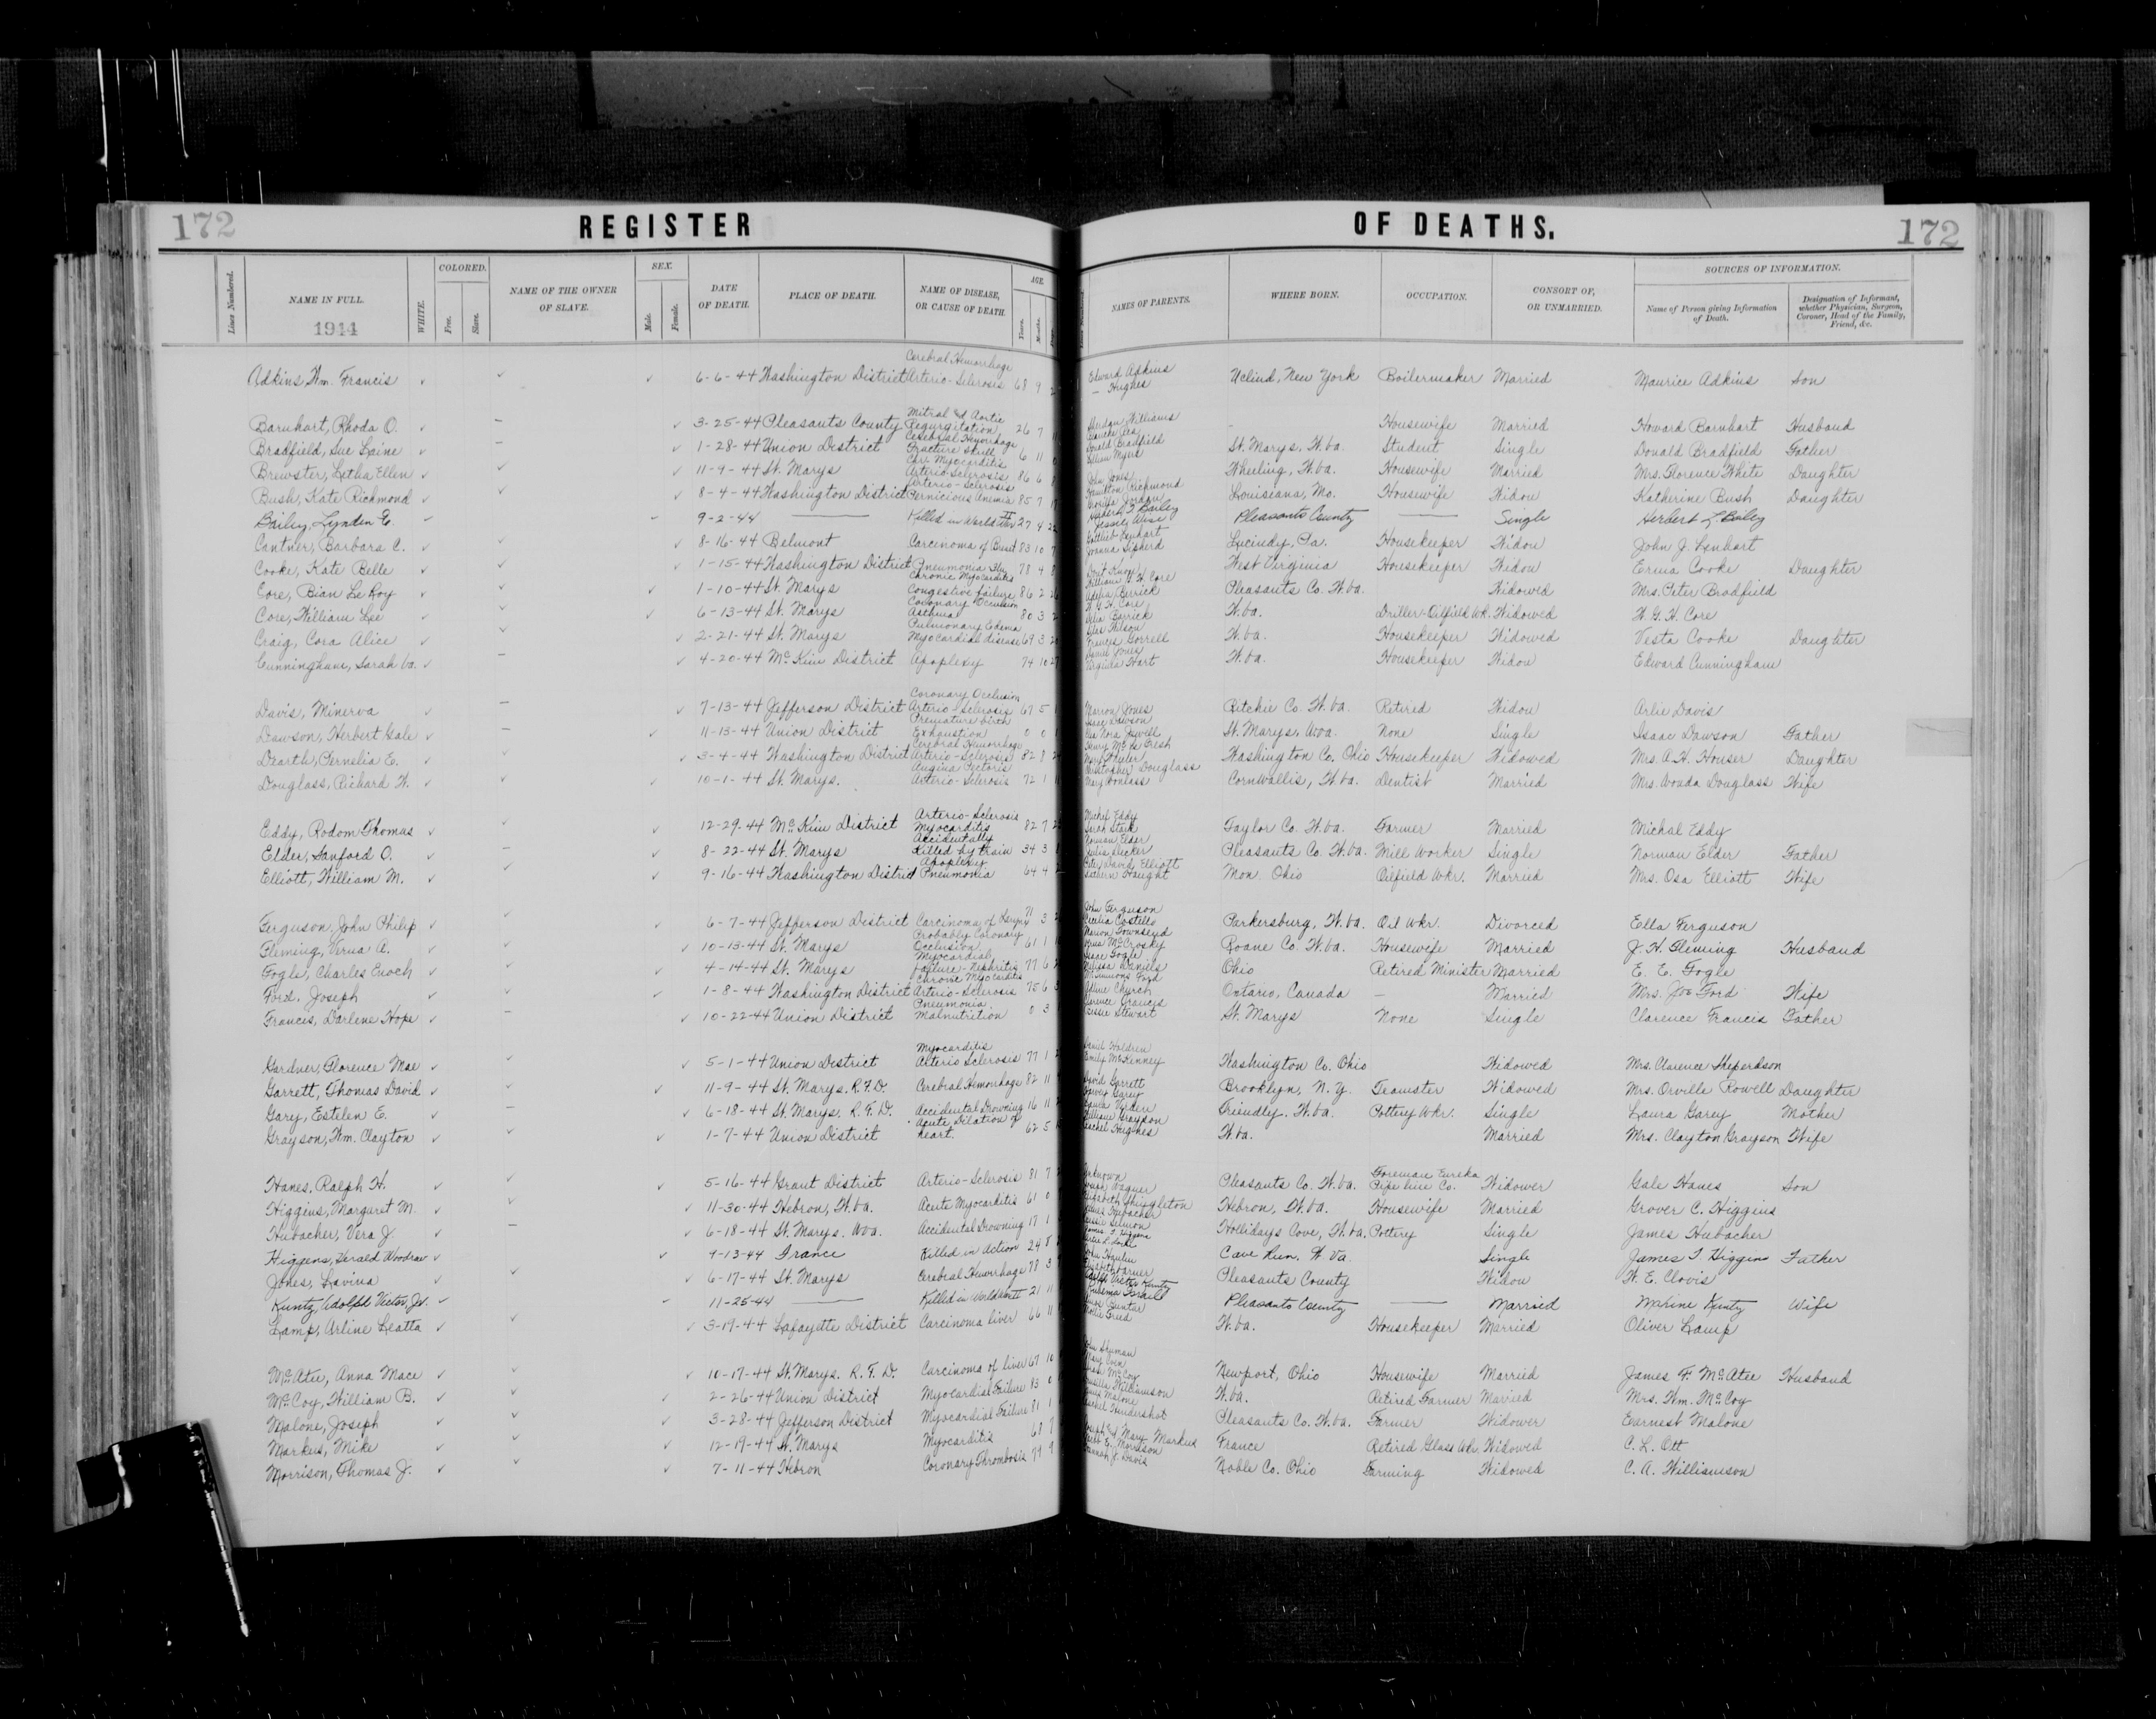 172 REGISTER OF DEATHS. 172
Lines Numbered. NAME IN FULL. WHITE. COLORED. Free. Slave. NAME OF THE OWNER OF SLAVE. SEX. Male. Female. DATE OF DEATH. PLACE OF DEATH. NAME OF DISEASE, OR CAUSE OF DEATH. AGE. Years. Months. NAMES OF PARENTS. WHERE BORN. OCCUPATION. CONSORT OF, OR UNMARRIED. SOURCES OF INFORMATION. Name of Person giving Information of Death. Designation of Informant, whether Physician, Surgeon, Coroner, Head of the Family, Friend, &c.
1944
Adkins, Wm. Francis 6-6-44 Washington District Cerebral Hemorrhage Arterio-Sclerosis 68 9 Edward Adkins — Hughes New York Boilermaker Married Maurice Adkins Son
Barnhart, Rhoda O. 3-25-44 Pleasants County Mitral and Aortic Regurgitation 26 7 Williams Housewife Married Howard Barnhart Husband
Bradfield, Sue Laine 1-28-44 Union District Cerebral Hemorrhage Fracture Skull 6 11 Donald Bradfield St. Marys, W. Va. Student Single Donald Bradfield Father
Brewster, Letha Ellen 11-9-44 St. Marys Chr. Myocarditis Arterio-Sclerosis 86 6 John Jones Wheeling, W. Va. Housewife Married Mrs. Florence White Daughter
Bush, Kate Richmond 8-4-44 Washington District Arterio-Sclerosis Pernicious Anemia 85 7 Richmond Jordan Louisiana, Mo. Housewife Widow Katherine Bush Daughter
Bailey, Lynden E. 9-2-44 — Killed in World War II 27 4 Herbert L. Bailey Jessie Wise Pleasants County — Single Herbert L. Bailey
Cantner, Barbara C. 8-16-44 Belmont Carcinoma of Breast 83 10 Gottlieb Lenhart Lucindy, Pa. Housekeeper Widow John J. Lenhart
Cooke, Kate Belle 1-15-44 Washington District Pneumonia Flu 78 4 Don't Know West Virginia Housekeeper Widow Erma Cooke Daughter
Core, Bian LeRoy 1-10-44 St. Marys Chronic Myocarditis Congestive failure 86 2 William H. H. Core Pleasants Co. W. Va. Widowed Mrs. Peter Bradfield
Core, William Lee 6-13-44 St. Marys Coronary Occlusion Asthma 80 3 W. G. H. Core W. Va. Driller-Oilfield Wk. Widowed W. G. H. Core
Craig, Cora Alice 2-21-44 St. Marys Pulmonary Edema Myocardial disease 69 3 Wilson Frances Gorrell W. Va. Housekeeper Widowed Vesta Cooke Daughter
Cunningham, Sarah Va. 4-20-44 McKim District Apoplexy 74 10 27 Daniel Jones Virginia Hart W. Va. Housekeeper Widow Edward Cunningham
Davis, Minerva 7-13-44 Jefferson District Coronary Occlusion Arterio-Sclerosis 67 5 Marion Jones Ritchie Co. W. Va. Retired Widow Arlie Davis
Dawson, Herbert Gale 11-13-44 Union District Premature birth Exhaustion 0 0 Isaac Dawson St. Marys, W. Va. None Single Isaac Dawson Father
Dearth, Pernelia E. 3-4-44 Washington District Cerebral Hemorrhage Arterio-Sclerosis 82 8 Washington Co. Ohio Housekeeper Widowed Mrs. A. H. Houser Daughter
Douglass, Richard W. 10-1-44 St. Marys. Angina Pectoris Arterio-Sclerosis 72 1 Christopher Douglass Cornwallis, W. Va. Dentist Married Mrs. Wonda Douglass Wife
Eddy, Rodom Thomas 12-29-44 McKim District Arterio-Sclerosis Myocarditis 82 7 Michel Eddy Sarah Stark Taylor Co. W. Va. Farmer Married Michal Eddy
Elder, Sanford O. 8-22-44 St. Marys Accidentally Killed by train 34 3 Norman Elder Pleasants Co. W. Va. Mill Worker Single Norman Elder Father
Elliott, William M. 9-16-44 Washington District Apoplexy Pneumonia 64 4 David Elliott Haught Mon. Ohio Oilfield Wkr. Married Mrs. Osa Elliott Wife
Ferguson, John Philip 6-7-44 Jefferson District Carcinoma of Larynx 71 3 John Ferguson Cecilia Costello Parkersburg, W. Va. Oil Wkr. Divorced Ella Ferguson
Fleming, Verna A. 10-13-44 St. Marys Probably Coronary Occlusion 61 1 Marion Townsend McCrosky Roane Co. W. Va. Housewife Married J. H. Fleming Husband
Fogle, Charles Enoch 4-14-44 St. Marys Myocardial failure-Nephritis 77 6 Isaac Fogle Melissa Daniels Ohio Retired Minister Married E. E. Fogle
Ford, Joseph 1-8-44 Washington District Chronic Myocarditis Arterio-Sclerosis 75 6 Ford Church Ontario, Canada — Married Mrs. Joe Ford Wife
Francis, Darlene Hope 10-22-44 Union District Pneumonia Malnutrition 0 3 Clarence Francis Bessie Stewart St. Marys None Single Clarence Francis Father
Gardner, Florence Mae 5-1-44 Union District Myocarditis Arterio Sclerosis 77 1 Daniel Holdren Emily McKenney Washington Co. Ohio Widowed Mrs. Clarence Sheperdson
Garrett, Thomas David 11-9-44 St. Marys. R.F.D. Cerebral Hemorrhage 82 11 David Garrett Brooklyn, N. Y. Teamster Widowed Mrs. Orville Rowell Daughter
Gary, Estelen E. 6-18-44 St. Marys, R. F. D. Accidental Drowning 16 11 Friendly, W. Va. Pottery Wkr. Single Laura Garey Mother
Grayson, Wm. Clayton 1-7-44 Union District Acute Dilation of heart. 62 5 William Grayson Rachel Hughes W. Va. Married Mrs. Clayton Grayson Wife
Hanes, Ralph H. 5-16-44 Grant District Arterio-Sclerosis 81 7 Unknown Pleasants Co. W. Va. Foreman Eureka Pipe line Co. Widower Gale Hanes Son
Higgins, Margaret M. 11-30-44 Hebron, W. Va. Acute Myocarditis 61 0 Wagner Elizabeth Shingleton Hebron, W. Va. Housewife Married Grover C. Higgins
Hubacher, Vera J. 6-18-44 St. Marys. W. Va. Accidental Drowning 17 1 Hubacher Hollidays Cove, W. Va. Pottery Single James Hubacher
Higgens, Gerald Woodrow 9-13-44 France Killed in Action 24 8 James T. Higgens Cave Run, W. Va Single James T. Higgins Father
Jones, Lavina 6-17-44 St. Marys Cerebral Hemorrhage 78 3 Pleasants County Widow W. E. Clovis
Kuntz, Adolph Victor, Jr. 11-25-44 — Killed in World War II 21 11 Adolph Victor Kuntz Pleasants County — Married Maxine Kuntz Wife
Lamp, Arline Leatta 3-19-44 Lafayette District Carcinoma liver 66 11 W. Va. Housekeeper Married Oliver Lamp
McAtee, Anna Mace 10-17-44 St. Marys. R. F. D. Carcinoma of liver 67 10 John Shuman Mary Coen Newport, Ohio Housewife Married James F. McAtee Husband
McCoy, William B. 2-26-44 Union District Myocardial Failure 83 0 McCoy Williamson W. Va. Retired Farmer Married Mrs. Wm. McCoy
Malone, Joseph 3-28-44 Jefferson District Myocardial Failure 81 1 James Malone Hendershot Pleasants Co. W. Va. Farmer Widower Earnest Malone
Markus, Mike 12-19-44 St. Marys Myocarditis 68 7 Joseph and Mary Markus France Retired Glass Wkr. Widowed C. L. Ott
Morrison, Thomas J. 7-11-44 Hebron Coronary Thrombosis 79 9 Morrison Hannah J. Davis Noble Co. Ohio Farming Widowed C. A. Williamson